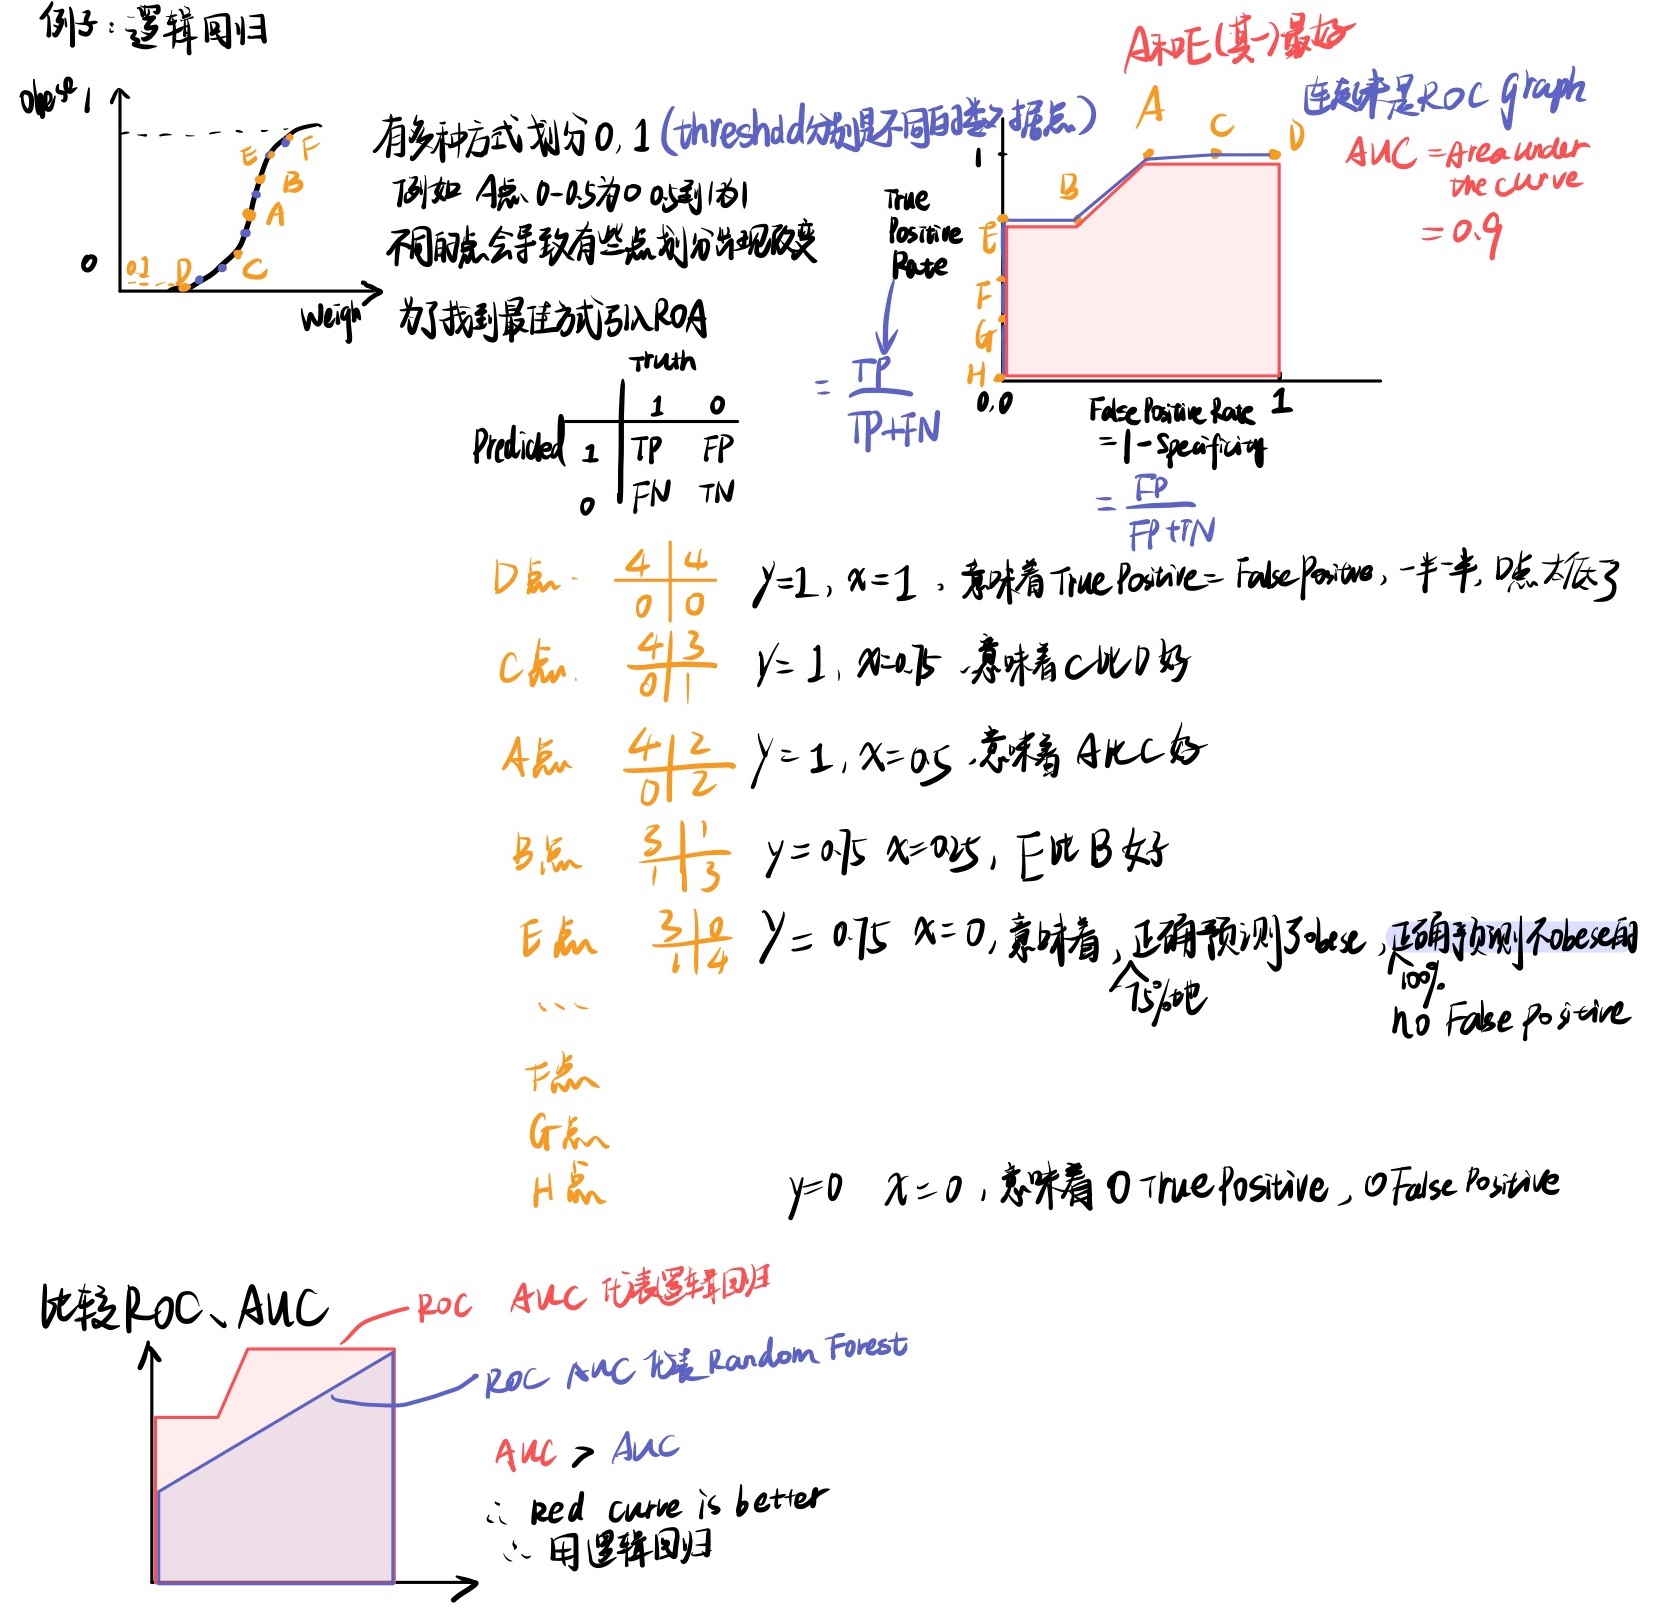 例子：逻辑回归
obese 1
0
0.1
D
C
A
B
E
F
weigh
有多种方式划分0,1（threshold分别是不同的数据点）
例如 A点 0-0.5为0 0.5到1为1
不同的点会导致有些点划分出现改变
为了找到最佳方式引入ROA
A和E(其一)最好
连起来是ROC graph
AUC = Area under
the curve
= 0.9
True
Positive
Rate
= TP
TP+FN
1
A
C
D
B
E
F
G
H
0,0
1
False Positive Rate
= 1 - Specificity
= FP
FP+TN
Truth
1 0
Predicted 1 TP FP
0 FN TN
D点 4 4
0 0
y=1, x=1, 意味着True Positive = False Positive, 一半一半, D点太低了
C点 4 3
0 1
y=1, x=0.75 意味着C比D好
A点 4 2
0 2
y=1, x=0.5, 意味着 A比C好
B点 3 1
1 3
y=0.75 x=0.25, E比B好
E点 3 0
1 4
y=0.75 x=0, 意味着, 正确预测了obese, 正确预测不obese的
75%地
100%
no False Positive
...
F点
G点
H点 y=0 x=0, 意味着 0 True Positive, 0 False Positive
比较ROC、AUC
ROC AUC 代表逻辑回归
ROC AUC 代表Random Forest
AUC > AUC
∴ Red curve is better
∴ 用逻辑回归